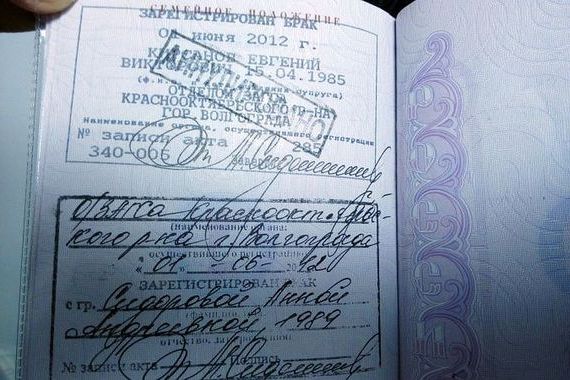 СЕМЕЙНОЕ ПОЛОЖЕНИЕ
ЗАРЕГИСТРИРОВАН БРАК
июня 2012 г.
ЕВГЕНИЙ
15.04.1985
ОТДЕЛОМ ЗАГСА
КРАСНООКТЯБРЬСКОГО Р-НА
ГОР. ВОЛГОГРАДА
Наименование органа, осуществившего регистрацию
№ записи акта 285
340-006
о/ЗАГСа Краснооктябрьс-
(наименование органа,
кого р-на г. Волгограда
осуществившего регистрацию)
"01" 06
ЗАРЕГИСТРИРОВАН БРАК
с гр. Сидоровой Анной
Андреевной, 1989
№ записи акта Подпись